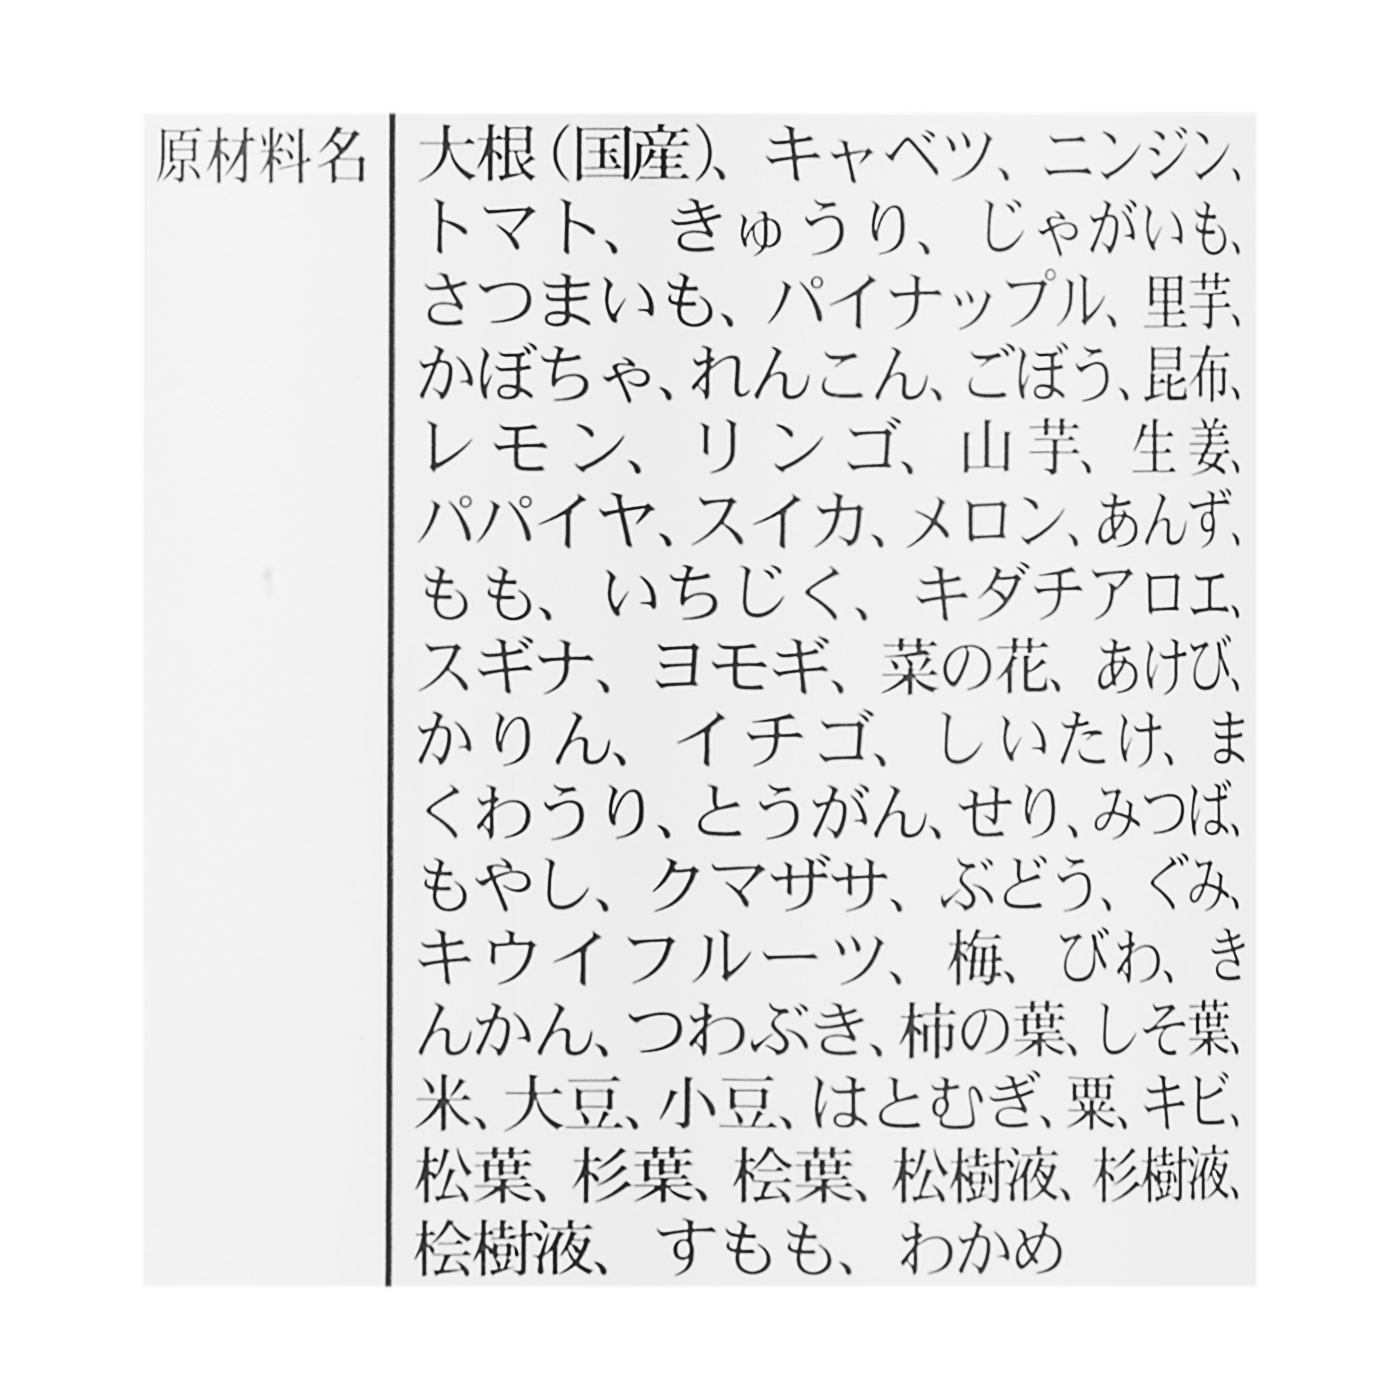 原材料名 大根(国産)、キャベツ、ニンジン、
トマト、きゅうり、じゃがいも、
さつまいも、パイナップル、里芋、
かぼちゃ、れんこん、ごぼう、昆布、
レモン、リンゴ、山芋、生姜、
パパイヤ、スイカ、メロン、あんず、
もも、いちじく、キダチアロエ、
スギナ、ヨモギ、菜の花、あけび、
かりん、イチゴ、しいたけ、ま
くわうり、とうがん、せり、みつば、
もやし、クマザサ、ぶどう、ぐみ、
キウイフルーツ、梅、びわ、き
んかん、つわぶき、柿の葉、しそ葉、
米、大豆、小豆、はとむぎ、粟、キビ、
松葉、杉葉、桧葉、松樹液、杉樹液、
桧樹液、すもも、わかめ